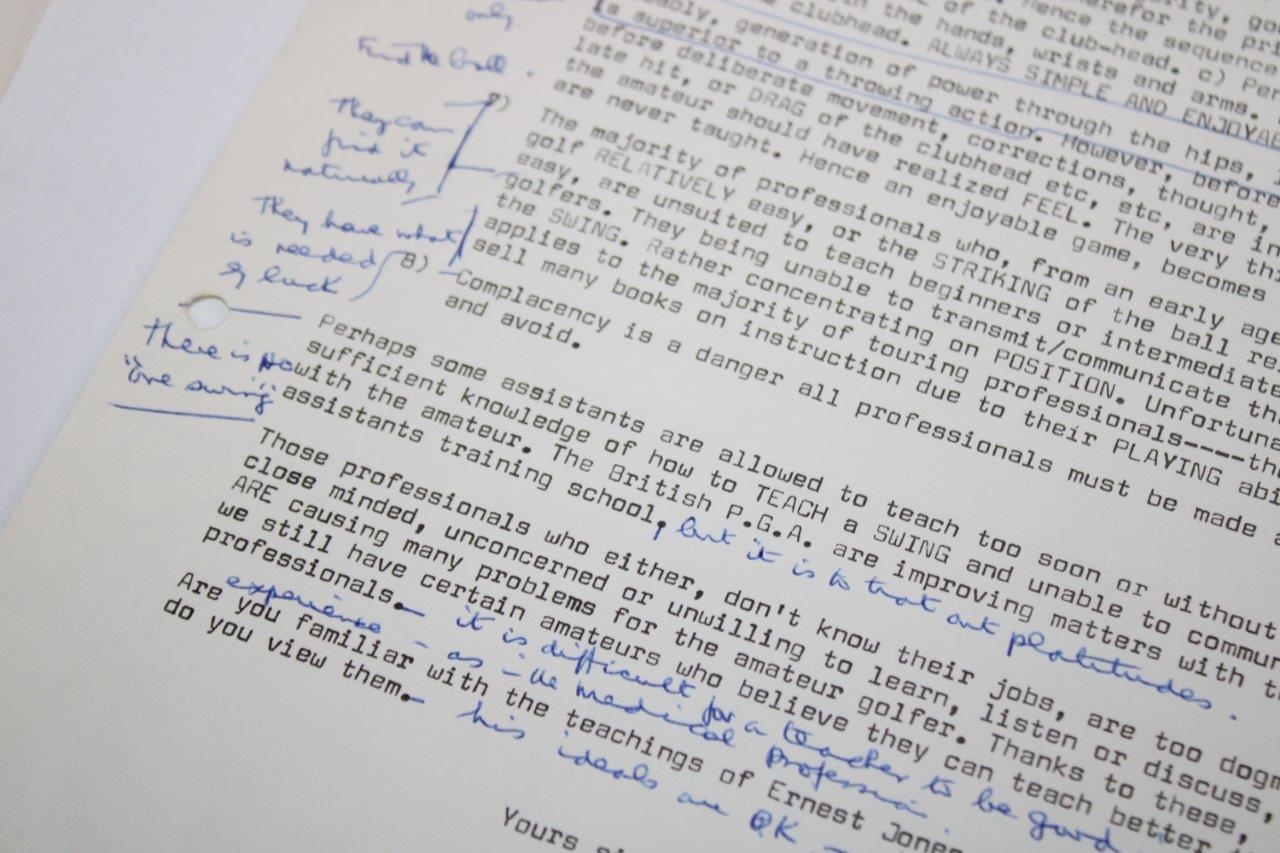 of the club-head. c) Per
the clubhead. ALWAYS SIMPLE AND ENJOYAB
generation of power through the hips,
is superior to a throwing action. However, before
before deliberate movement, corrections, thought,
late hit, or DRAG of the clubhead etc, etc, are in
the amateur should have realized FEEL. The very thi
are never taught. Hence an enjoyable game, becomes
only.
Find the ball.
7)
They can
find it
naturally
The majority of professionals who, from an early age
golf RELATIVELY easy, or the STRIKING of the ball rel
easy, are unsuited to teach beginners or intermediate
golfers. They being unable to transmit/communicate th
the SWING. Rather concentrating on POSITION. Unfortuna
applies to the majority of touring professionals----th
sell many books on instruction due to their PLAYING abi
They have what
is needed
by luck
8)
Complacency is a danger all professionals must be made a
and avoid.
Perhaps some assistants are allowed to teach too soon or without
sufficient knowledge of how to TEACH a SWING and unable to commun
with the amateur. The British P.G.A. are improving matters with t
assistants training school, but it is to trot out platitudes.
There is no
"one swing"
Those professionals who either, don't know their jobs, are too dogm
close minded, unconcerned or unwilling to learn, listen or discuss,
ARE causing many problems for the amateur golfer. Thanks to these,
we still have certain amateurs who believe they can teach better
professionals. - it is difficult for a teacher to be good
experience - as in the medical profession.
Are you familiar with the teachings of Ernest Jones
do you view them. - his ideals are OK
Yours si